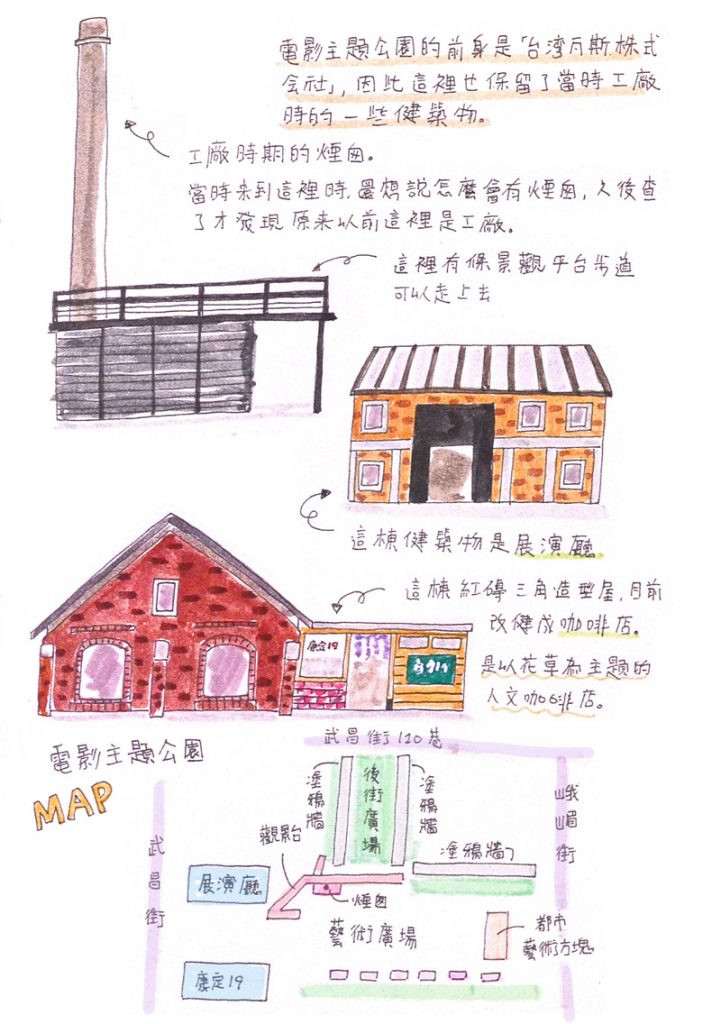 電影主題公園的前身是「台湾瓦斯株式
会社」，因此這裡也保留了當時工廠
時的一些健築物。
工廠時期的煙囪。
當時来到這裡時，還想說怎麼會有煙囪，久後查
了才發現 原来以前這裡是工廠。
這裡有條景觀平台步道
可以走上去
這棟健築物是展演廳
這棟紅磚三角造型屋，目前
改健成咖啡店。
是以花草為主題的
人文咖啡店。
康定19
電影主題公園
MAP
武昌街120巷
塗鴉牆
後街廣場
塗鴉牆
峨嵋街
武昌街
觀影台
塗鴉牆
展演廳
煙囪
藝術廣場
都市
藝術方塊
康定19